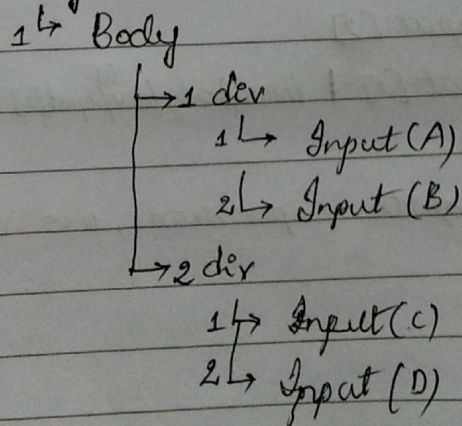 1 Body
1 dev
1 Input (A)
2 Input (B)
2 div
1 Input (C)
2 Input (D)